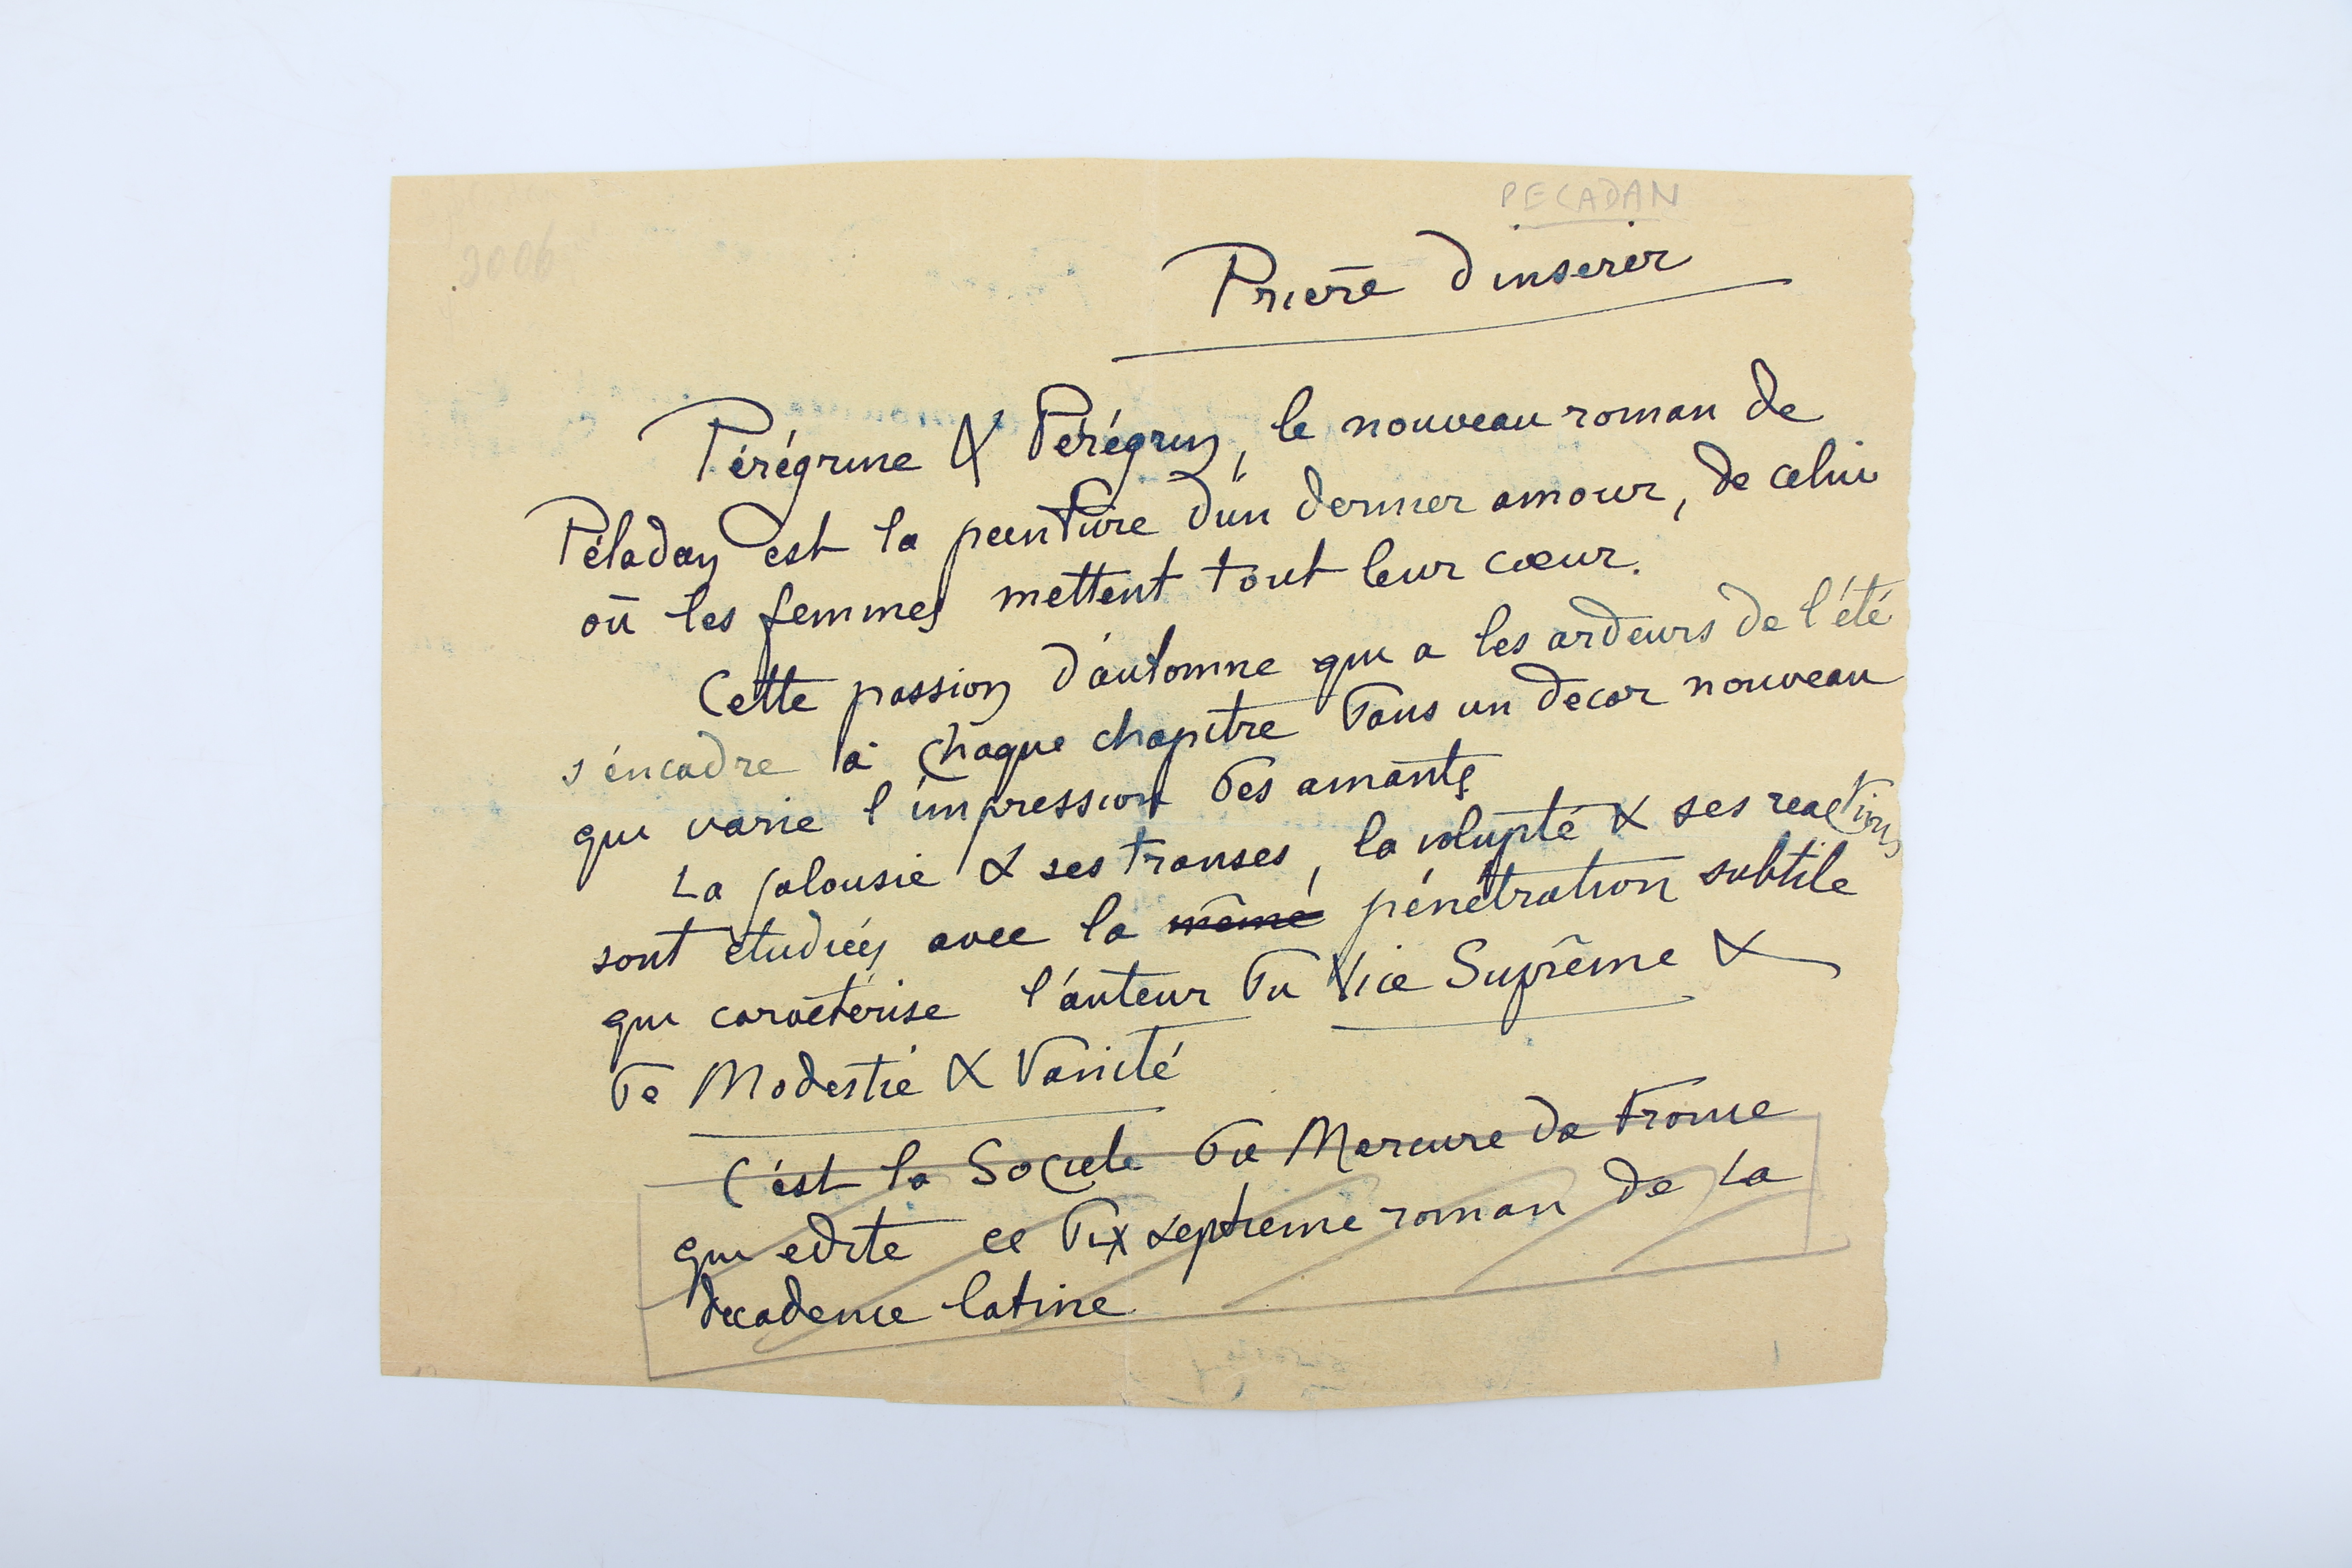 PELADAN
200b
Prière d'inserer
Pérégrine & Pérégrin, le nouveau roman de
Péladan est la peinture d'un dernier amour, de celui
où les femmes mettent tout leur cœur.
Cette passion d'automne qui a les ardeurs de l'été
s'encadre à chaque chapitre dans un decor nouveau
qui varie l'impression des amants
La jalousie & ses transes, la volupté & ses reactions
sont étudiées avec la même pénétration subtile
qui caractérise l'auteur du Vice Suprême &
de Modestie & Vanité
C'est la Societe du Mercure de France
qui edite ce dix septieme roman de La
decadence latine